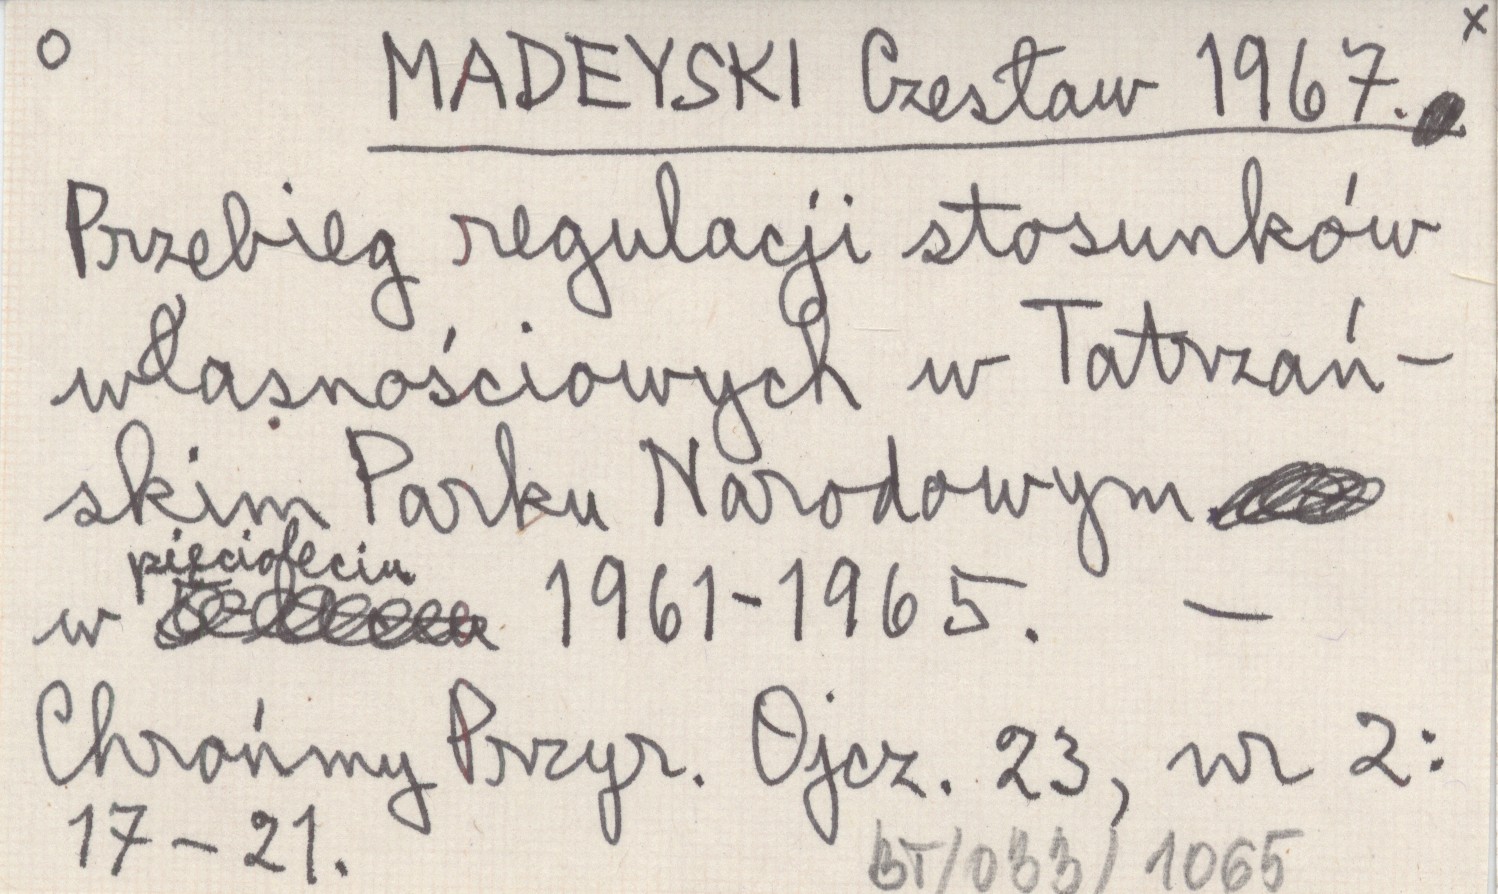 o x
MADEYSKI Czesław 1967.
Przebieg regulacji stosunków
własnościowych w Tatrzań-
skim Parku Narodowym
pięcioleciu
w 1961-1965. –
Chrońmy Przyr. Ojcz. 23, nr 2:
17-21.
BT/033/1065